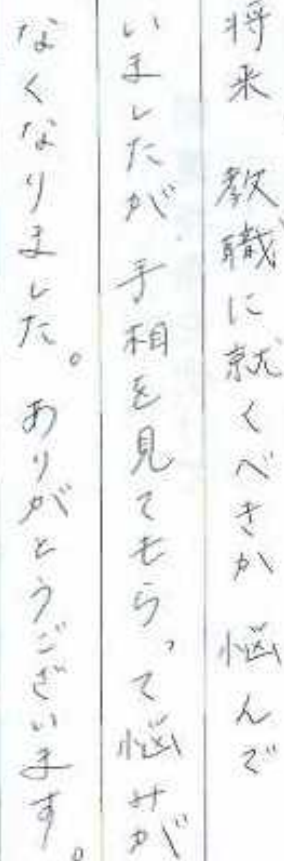 将来 教職に就くべきか 悩んで
いましたが、手相を見てもらって悩みが
なくなりました。ありがとうございます。